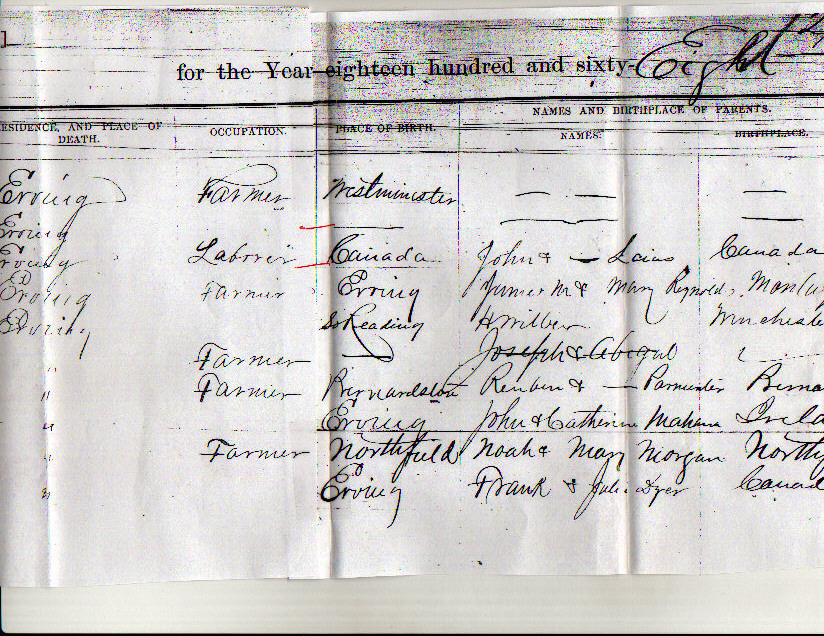 for the Year eighteen hundred and sixty-Eight
RESIDENCE, AND PLACE OF DEATH. OCCUPATION. PLACE OF BIRTH. NAMES AND BIRTHPLACE OF PARENTS.
NAMES. BIRTHPLACE.
Erving Farmer Westminister — — —
Erving — —
Erving Laborer Canada John & — Canada
Erving Farmer Erving James M & Mary Reynolds
Erving So Reading Wincheste
" Farmer — Joseph & Abigail
" Farmer Bernardston Reuben & — Parmenter Berna
" Erving John & Catherine Mahana Irela
" Farmer Northfield Noah & Mary Morgan Northf
" Erving Frank & Julia Dyer Canad